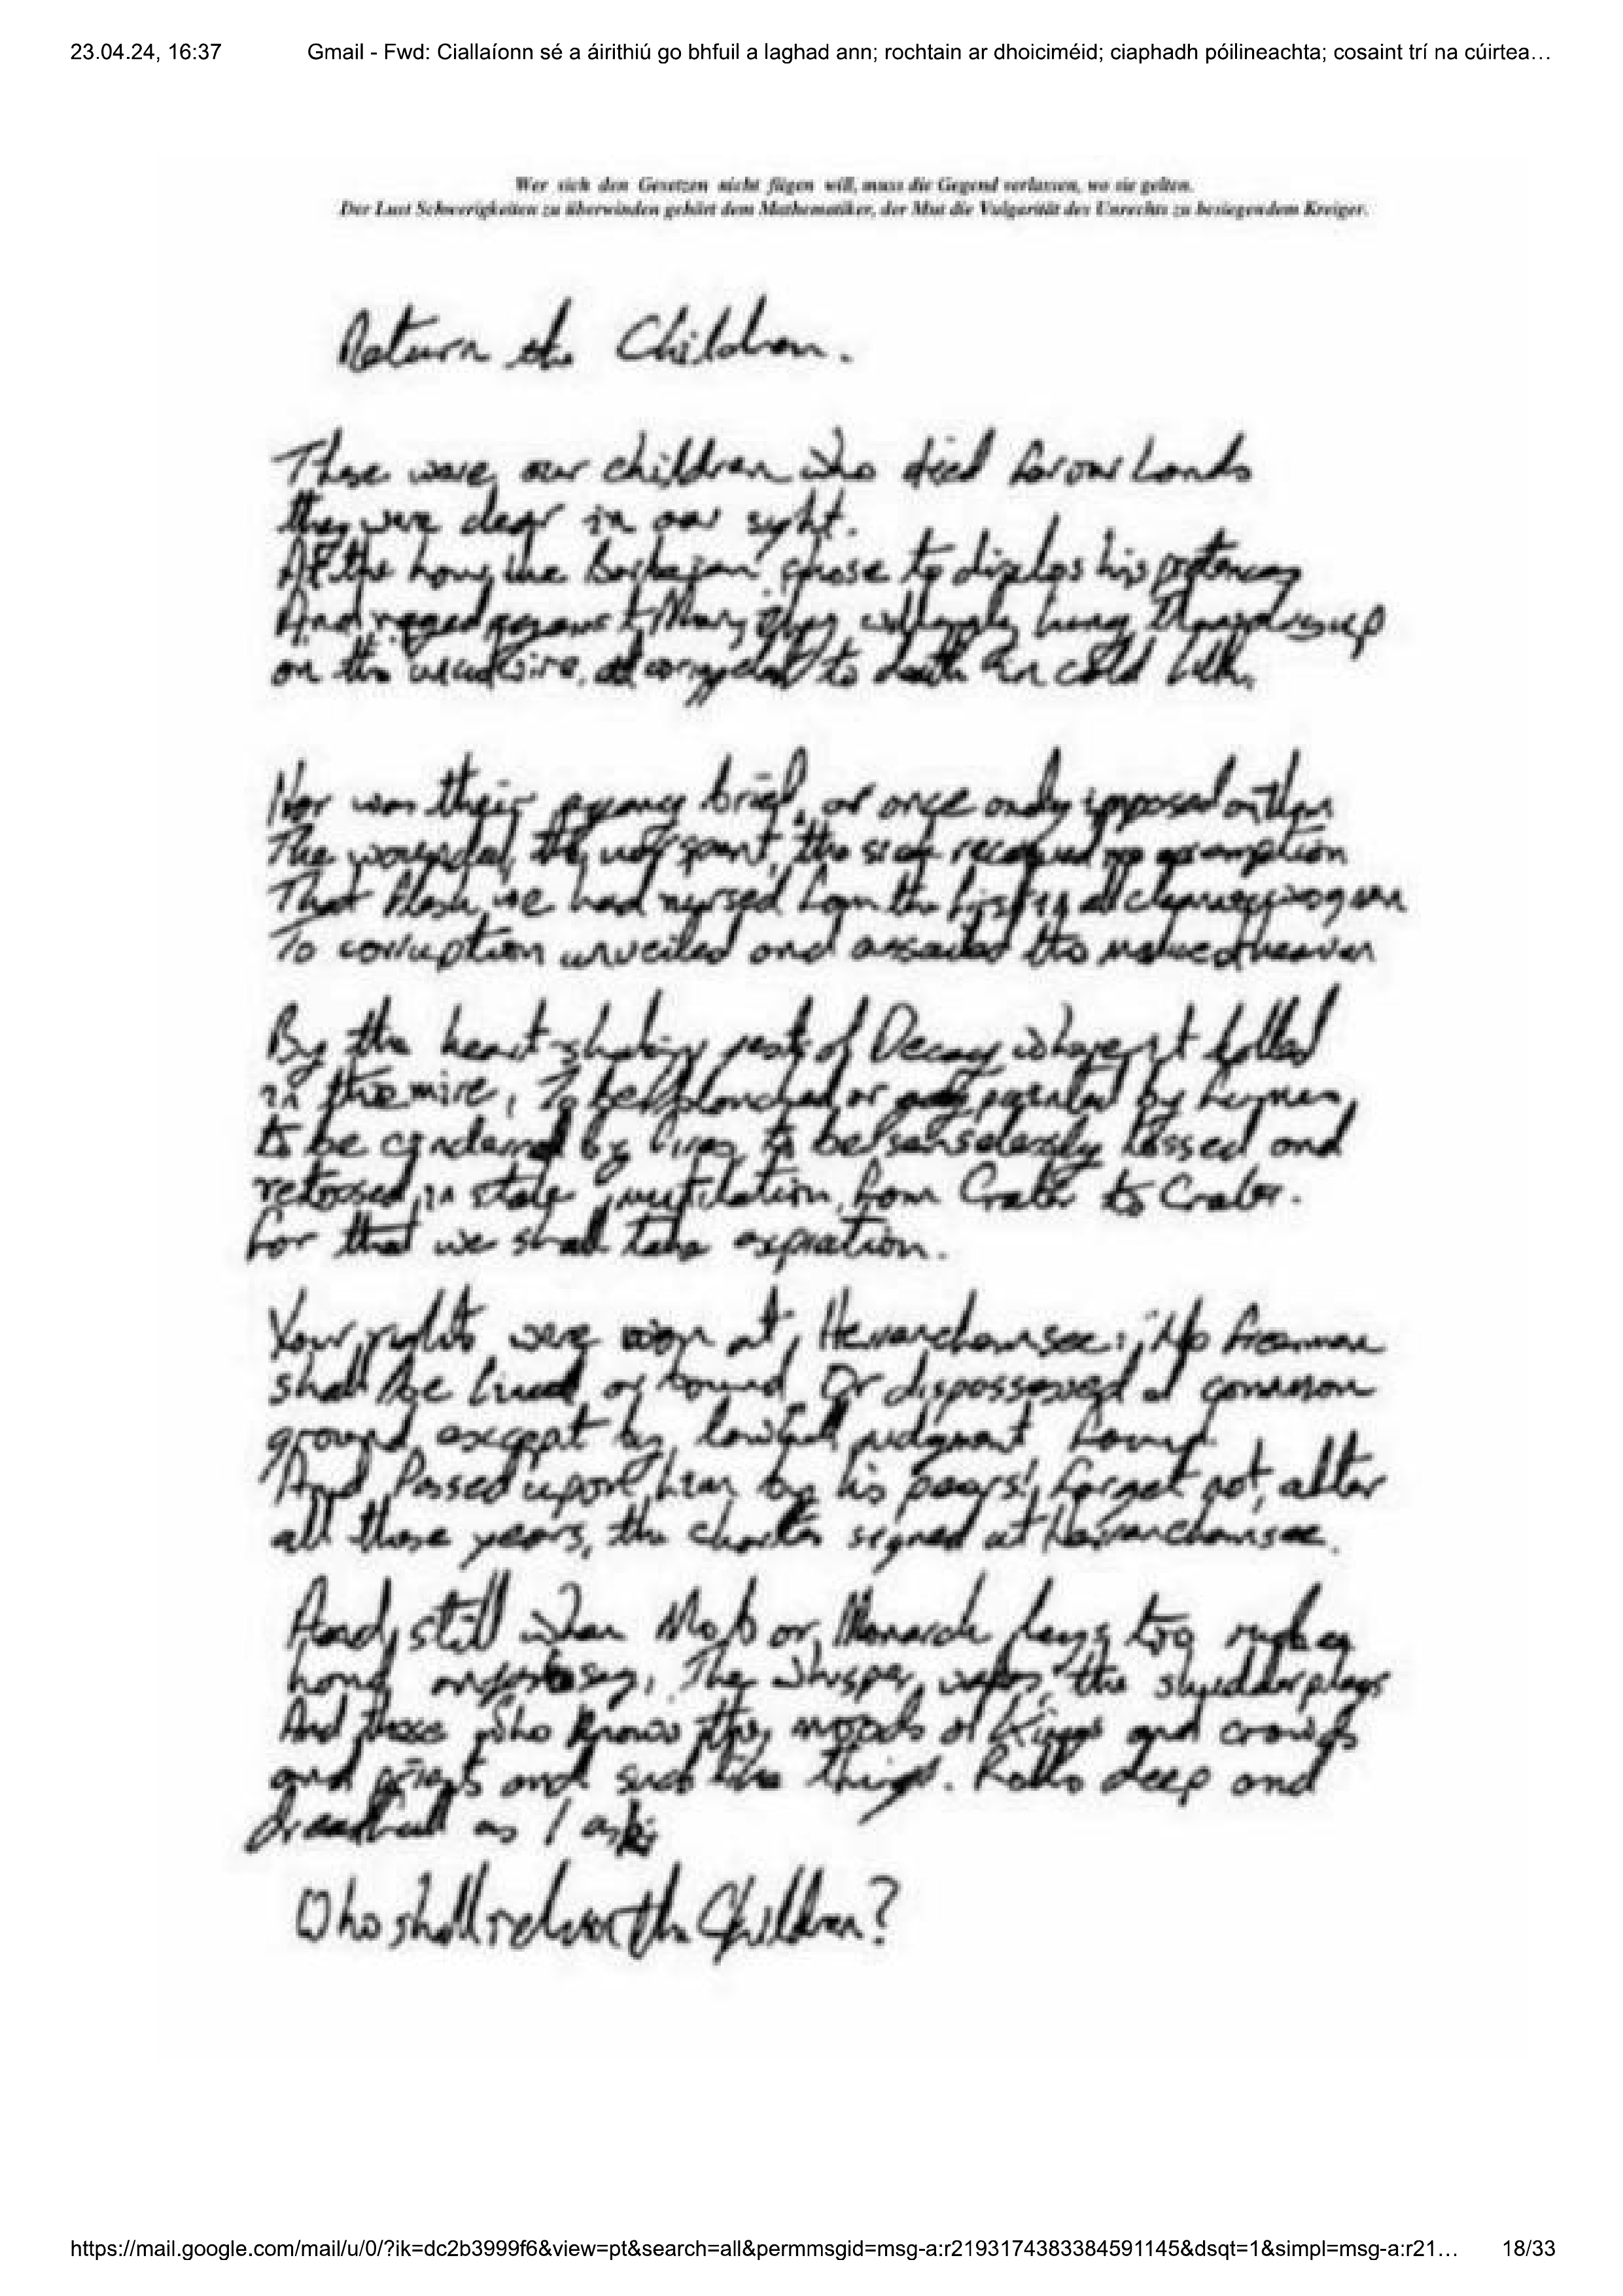 23.04.24, 16:37 Gmail - Fwd: Ciallaíonn sé a áirithiú go bhfuil a laghad ann; rochtain ar dhoiciméid; ciaphadh póilineachta; cosaint trí na cúirtea…
Wer sich den Gesetzen nicht fügen will, muss die Gegend verlassen, wo sie gelten.
Der Lust Schwerigkeiten zu überwinden gehört dem Mathematiker, der Mut die Vulgarität des Unrechts zu besiegendem Kreiger.
Return the Children.
These were our children who died for our Lands
they were dear in our sight.
At the hour the chose to his
And against Mary they willingly hung up
on the wire, to death in cold
Nor was their agony brief, or once only imposed on them
The wounded, the spent, the sick received no exemption
That flesh we had nursed from the first in all
To corruption unveiled and assailed the heaven
By the heart-shaking jests of Decay where it lolled
in the mire, To be blanched or painted by fumes
to be cindered by fires, to be senselessly tossed and
retossed in stale mutilation, from Crater to Crater.
For that we shall take expiation.
Your rights were won at Herranchemsee: 'No freeman
shall be fined or bound Or dispossessed of common
ground except by lawfull judgment found
And Passed upon him by his peers! forget not, after
all those years, the charter signed at Herranchemsee.
And still when Mob or Monarch lays too rude a
hand The whisper wakes, the shudder plays
And those who knows the moods of Kings and crowds
and priests and such like things. Rolls deep and
dreadfull as I ask:
Who shall return the Children?
https://mail.google.com/mail/u/0/?ik=dc2b3999f6&view=pt&search=all&permmsgid=msg-a:r2193174383384591145&dsqt=1&simpl=msg-a:r21… 18/33